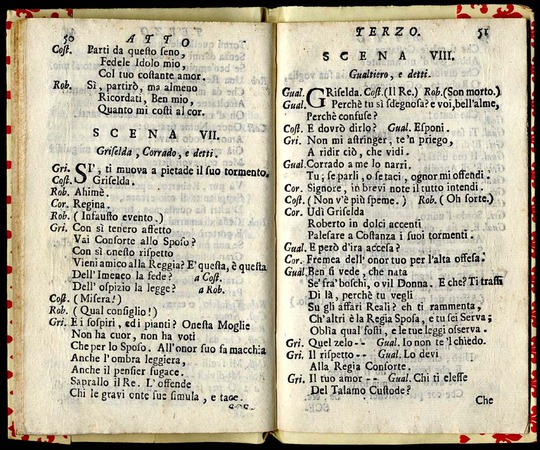 50
ATTO
Cost. Parti da questo seno,
Fedele Idolo mio,
Col tuo costante amor.
Rob. Sì, partirò, ma almeno
Ricordati, Ben mio,
Quanto mi costi al cor.
SCENA VII.
Griselda, Corrado, e detti.
Gri. SI', ti muova a pietade il suo tormento.
Cost. Griselda.
Rob. Ahimè.
Cor. Regina.
Rob. (Infausto evento.)
Gri. Con sì tenero affetto
Vai Conforte allo Sposo?
Con sì onesto rispetto
Vieni amico alla Reggia? E' questa, è questa
Dell' Imeneo la fede? a Cost.
Dell' ospizio la legge? a Rob.
Cost. (Misera!)
Rob. (Qual consiglio!)
Gri. E i sospiri, ed i pianti? Onesta Moglie
Non ha cuor, non ha voti
Che per lo Sposo. All' onor suo fa macchia
Anche l'ombra leggiera,
Anche il pensier fugace.
Saprallo il Re. L' offende
Chi le gravi onte sue simula, e tace.
TERZO.
51
SCENA VIII.
Gualtiero, e detti.
Gual. GRiselda. Cost. (Il Re.) Rob. (Son morto.)
Gual. Perchè tu sì sdegnosa? e voi, bell'alme,
Perchè confuse?
Cost. E dovrò dirlo? Gual. Esponi.
Gri. Non mi astringer, te'n priego,
A ridir ciò, che vidi.
Gual. Corrado a me lo narri.
Tu, se parli, o se taci, ognor mi offendi.
Cor. Signore, in brevi note il tutto intendi.
Cost. (Non v'è più speme.) Rob. (Oh sorte.)
Cor. Udì Griselda
Roberto in dolci accenti
Palesare a Costanza i suoi tormenti.
Gual. E però d'ira accesa?
Cor. Fremea dell' onor tuo per l'alta offesa.
Gual. Ben si vede, che nata
Se' fra' boschi, o vil Donna. E che? Ti traffi
Di là, perchè tu vegli
Su gli affari Reali? eh ti rammenta,
Ch'altri è la Regia Sposa, e tu sei Serva;
Oblia qual fosti, e le tue leggi osserva.
Gri. Quel zelo-- Gual. Io non te'l chiedo.
Gri. Il rispetto-- Gual. Lo devi
Alla Regia Conforte.
Gri. Il tuo amor-- Gual. Chi ti elesse
Del Talamo Custode?
Che